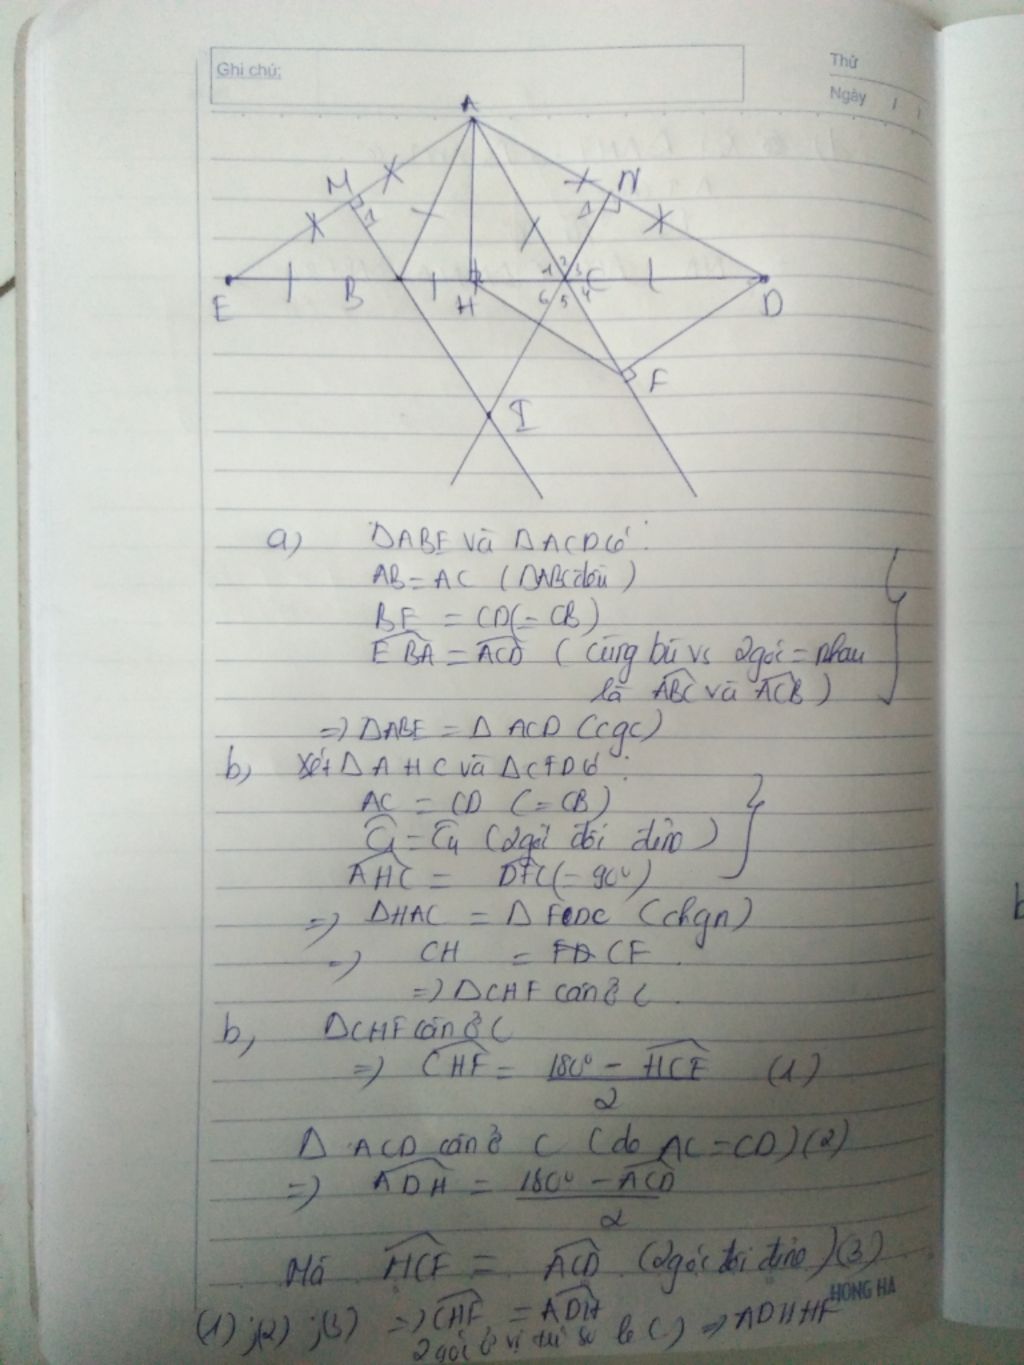 Ghi chú:
Thứ
Ngày / /
A
M
N
1
1
E
B
H
1 2 3
C
D
6 5 4
F
I
a) ΔABE và ΔACD có:
AB = AC (ΔABC đều)
BE = CD (= CB)
EBA = ACD (cùng bù vs 2 góc = nhau
là ABC và ACB)
=> ΔABE = Δ ACD (cgc)
b) Xét Δ AHC và ΔCFD có:
AC = CD (= CB)
C1 = C4 (2 góc đối đỉnh)
AHC = DFC (= 90°)
=> ΔHAC = Δ FDC (chgn)
=> CH = CF
=> ΔCHF cân ở C
b, ΔCHF cân ở C
=> CHF = 180° - HCF (1)
2
Δ ACD cân ở C (do AC = CD) (2)
=> ADH = 180° - ACD
2
Mà HCF = ACD (2 góc đối đỉnh) (3)
HONG HA
(1) ;(2) ;(3) => CHF = ADH
2 góc ở vị trí so le () => AD // HF